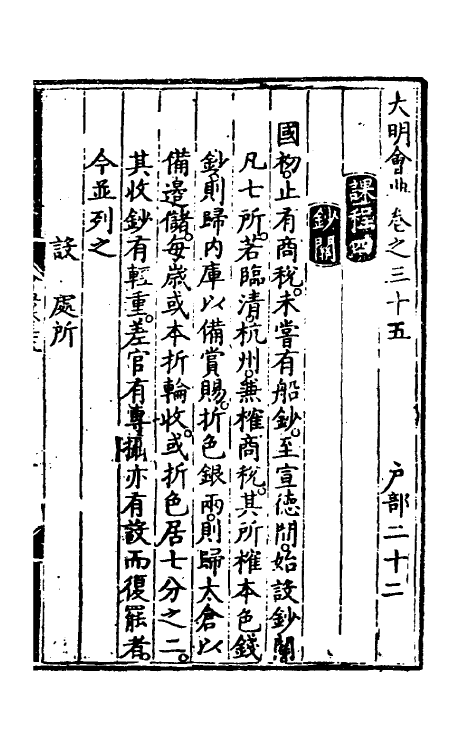 大明會典卷之三十五　戶部二十二
課程四
鈔關
國初止有商稅。未嘗有船鈔。至宣德間。始設鈔關
凡七所。若臨清杭州。兼榷商稅。其所榷本色錢
鈔。則歸內庫以備賞賜。折色銀兩。則歸太倉以
備邊儲。每歲或本折輪收。或折色居七分之二。
其收鈔有輕重。差官有專攝。亦有設而復罷者。
今並列之
設處所